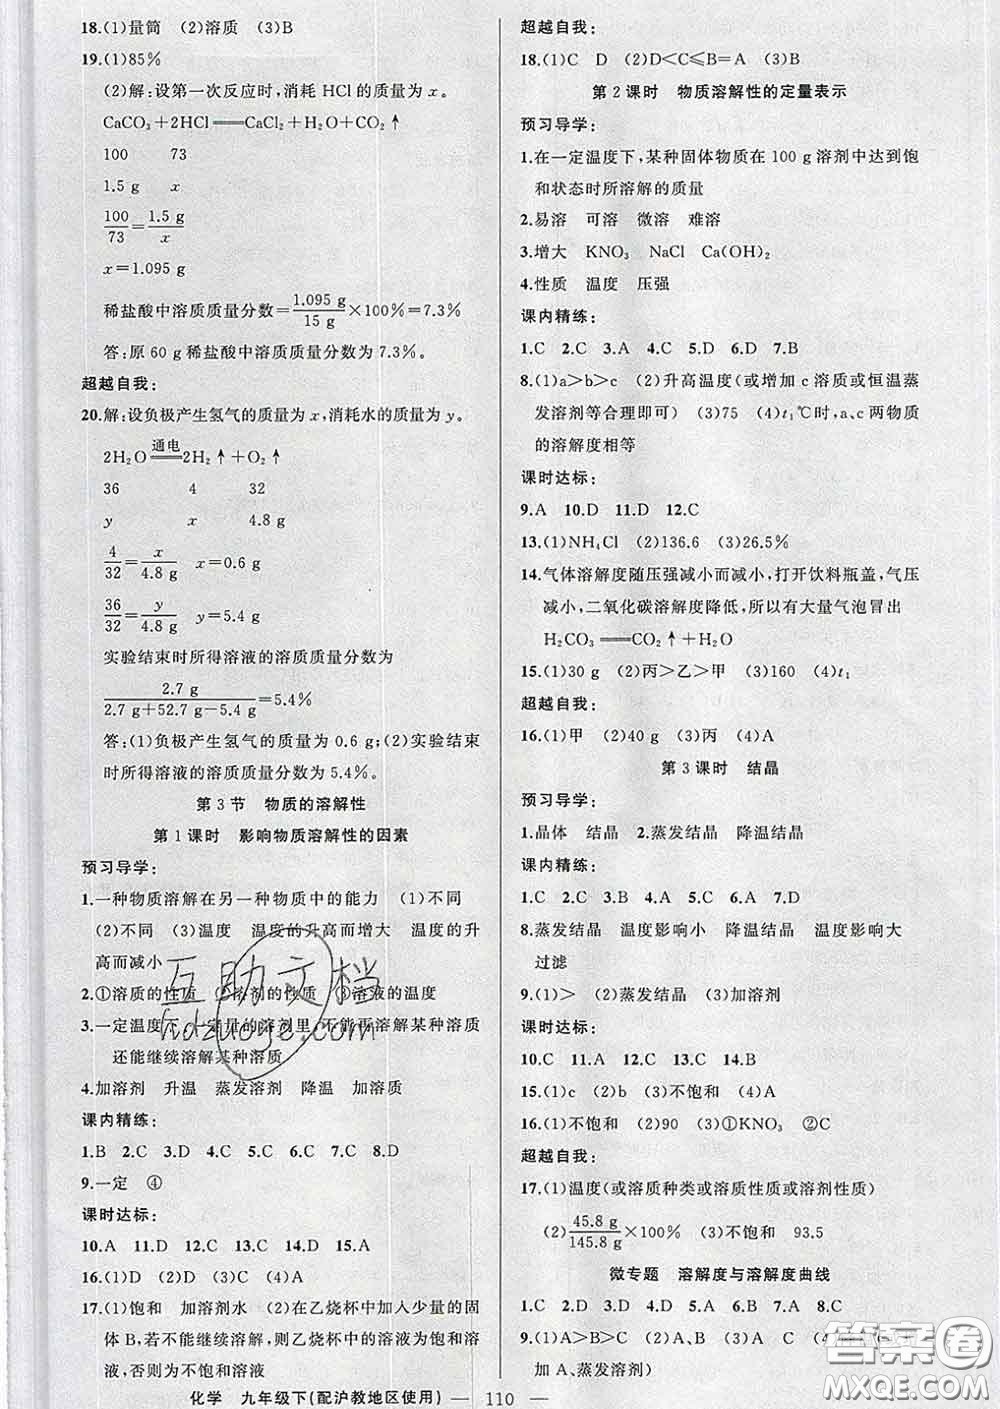 18.(1)量筒 (2)溶质 (3)B
19.(1)85%
(2)解:设第一次反应时,消耗 HCl 的质量为 x。
CaCO₃+2HCl══CaCl₂+H₂O+CO₂↑
100 73
1.5 g x
100/73=1.5 g/x
x=1.095 g
稀盐酸中溶质质量分数=1.095 g/15 g×100%=7.3%
答:原 60 g 稀盐酸中溶质质量分数为 7.3%。
超越自我:
20.解:设负极产生氢气的质量为 x,消耗水的质量为 y。
2H₂O通电══2H₂↑+O₂↑
36 4 32
y x 4.8 g
4/32=x/4.8 g x=0.6 g
36/32=y/4.8 g y=5.4 g
实验结束时所得溶液的溶质质量分数为
2.7 g/2.7 g+52.7 g−5.4 g=5.4%
答:(1)负极产生氢气的质量为 0.6 g;(2)实验结束
时所得溶液的溶质质量分数为 5.4%。
第 3 节 物质的溶解性
第 1 课时 影响物质溶解性的因素
预习导学:
1.一种物质溶解在另一种物质中的能力 (1)不同
(2)不同 (3)温度 温度的升高而增大 温度的升
高而减小
2.①溶质的性质 ②溶剂的性质 ③溶液的温度
3.一定温度下,一定量的溶剂里,不能再溶解某种溶质
还能继续溶解某种溶质
4.加溶剂 升温 蒸发溶剂 降温 加溶质
课内精练:
1.B 2.C 3.D 4.C 5.D 6.C 7.C 8.D
9.一定 ④
课时达标:
10.A 11.D 12.C 13.C 14.D 15.A
16.(1)D (2)D (3)C (4)A
17.(1)饱和 加溶剂水 (2)在乙烧杯中加入少量的固
体 B,若不能继续溶解,则乙烧杯中的溶液为饱和溶
液,否则为不饱和溶液
超越自我:
18.(1)C D (2)D<C≤B=A (3)B
第 2 课时 物质溶解性的定量表示
预习导学:
1.在一定温度下,某种固体物质在 100 g 溶剂中达到饱
和状态时所溶解的质量
2.易溶 可溶 微溶 难溶
3.增大 KNO₃ NaCl Ca(OH)₂
4.性质 温度 压强
课内精练:
1.C 2.C 3.A 4.C 5.D 6.D 7.B
8.(1)a>b>c (2)升高温度(或增加 c 溶质或恒温蒸
发溶剂等合理即可) (3)75 (4)t₁℃时,a、c 两物质
的溶解度相等
课时达标:
9.A 10.D 11.D 12.C
13.(1)NH₄Cl (2)136.6 (3)26.5%
14.气体溶解度随压强减小而减小,打开饮料瓶盖,气压
减小,二氧化碳溶解度降低,所以有大量气泡冒出
H₂CO₃══CO₂↑+H₂O
15.(1)30 g (2)丙>乙>甲 (3)160 (4)t₁
超越自我:
16.(1)甲 (2)40 g (3)丙 (4)A
第 3 课时 结晶
预习导学:
1.晶体 结晶 2.蒸发结晶 降温结晶
课内精练:
1.C 2.C 3.B 4.A 5.C 6.A 7.D
8.蒸发结晶 温度影响小 降温结晶 温度影响大
过滤
9.(1)> (2)蒸发结晶 (3)加溶剂
课时达标:
10.C 11.A 12.C 13.C 14.B
15.(1)c (2)b (3)不饱和 (4)A
16.(1)不饱和 (2)90 (3)①KNO₃ ②C
超越自我:
17.(1)温度(或溶质种类或溶质性质或溶剂性质)
(2)45.8 g/145.8 g×100% (3)不饱和 93.5
微专题 溶解度与溶解度曲线
1.C 2.D 3.D 4.C 5.D 6.D 7.A 8.C
9.(1)A>B>C (2)A、B (3)A C (4)
加 A、蒸发溶剂)
化学 九年级下(配沪教地区使用) — 110 —
互助文档
hdzuoye.com
答案圈
MXQE.COM